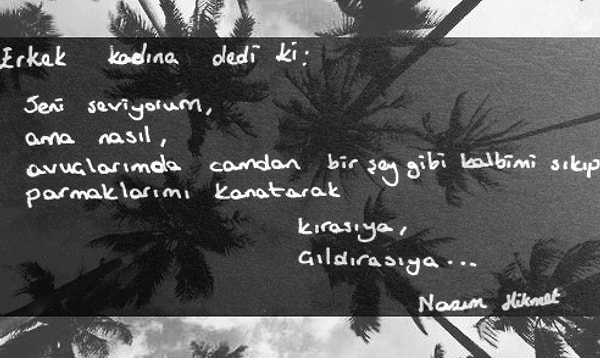 Erkek kadına dedi ki:
Seni seviyorum,
ama nasıl,
avuçlarımda camdan bir şey gibi kalbimi sıkıp
parmaklarımı kanatarak
kırasıya,
çıldırasıya...
Nazım Hikmet